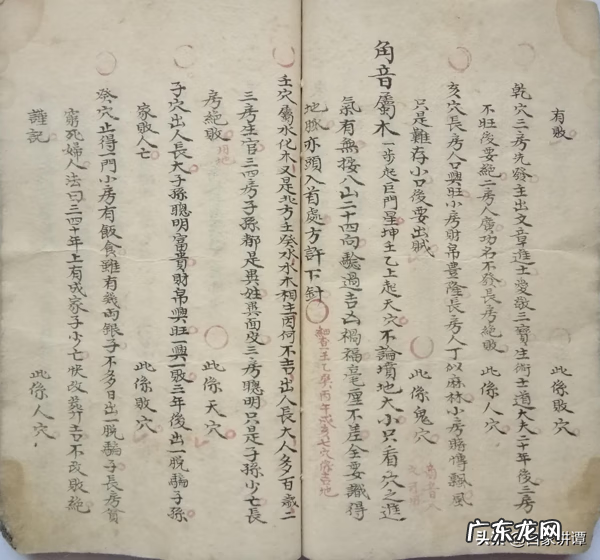 有敗　此係敗穴
乾穴三房先發主出文章進士愛敬三寶生術士道大夫二十年後二房
不旺後要絕二房人廣功名不發長房絕敗　此係人穴
亥穴長房人口興旺小房財帛豊隆長房人丁似麻林小房賭博飄風
只是難存小口後要出賊　此係鬼穴
角音屬木一步起巨門星坤壬乙上起天穴不論墳地大小只看穴之進
氣有無按八山二十四向騐過吉凶禍福毫厘不差全要識得
地脉亦頭入首處方許下針
壬穴屬水化木又是北方壬癸水水木相主因何不吉出人長大人多百歲二
三房生官三四房子孫都是異姓異面皮三房聰明只是子孫少亡長
房絕敗　此係天穴
子穴出人長大子孫聰明富貴財帛興旺一興一敗三年後出一脫騙子孫
家敗人亡　此係敗穴
癸穴止得一門小房有飯食雖有幾両銀子不多日出一脫騙子長房貧
窮死婦人法曰三四十年上有成家子少亡快改葬吉不改敗絕
謹記　此係人穴
头条 @百家讲谭
广东龙网